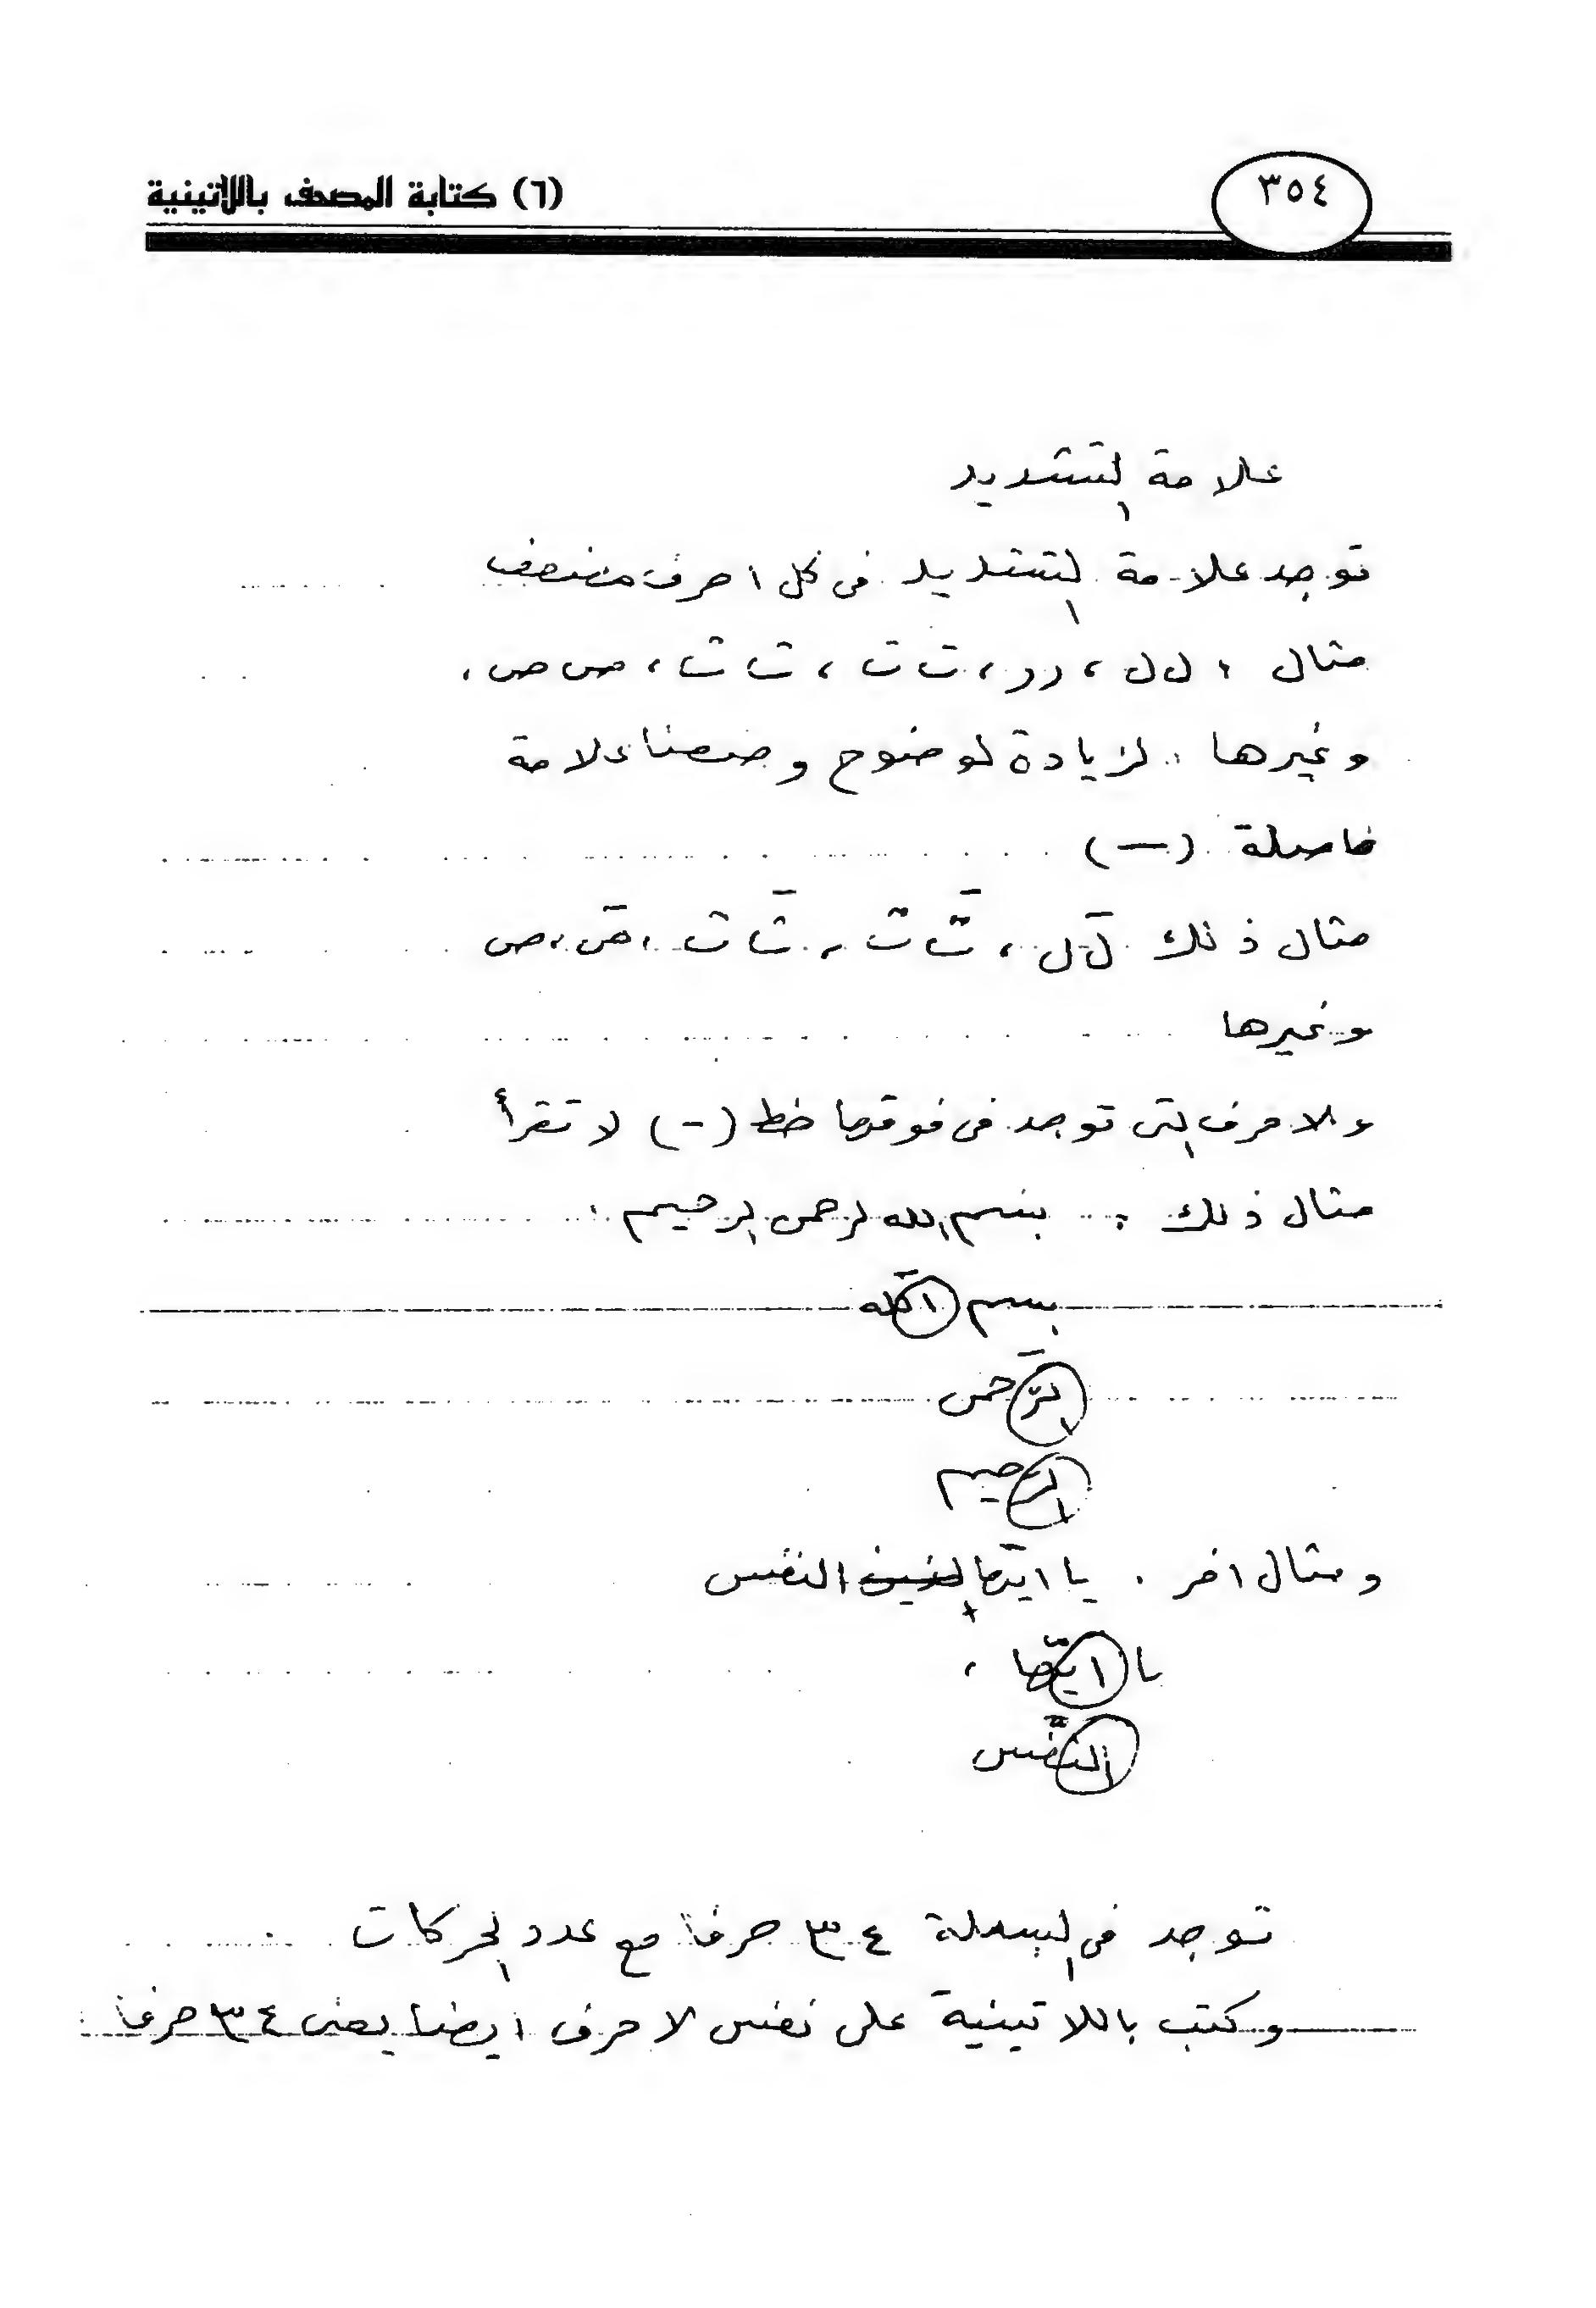 (٦) كتابة المصحف باللاتينية
٣٥٤
علامة التشديد
توجد علامة التشديد فى كل احرف مضعف
مثال : ل ل ، ر ر ، ت ت ، ث ث ، ص ص ،
وغيرها . لزيادة لوضوح وضعنا علامة
فاصلة (—)
مثال ذلك لَ ل ، تّ ت ، ث ث ، ص ، ص
وغيرها
والاحرف التى توجد فى فوقها خط (-) لا تقرأ
مثال ذلك : بسم الله لرحمن الرحيم .
بسم الله
الرّحمن
الرحيم
ومثال اخر . يا ايتها النفس
يا ايتّها ،
النّفس
توجد فى البسملة ٣٤ حرفاً مع عدد الحركات
وكتب باللاتينية على نفس لاحرف ايضا يعنى ٣٤ حرفاً